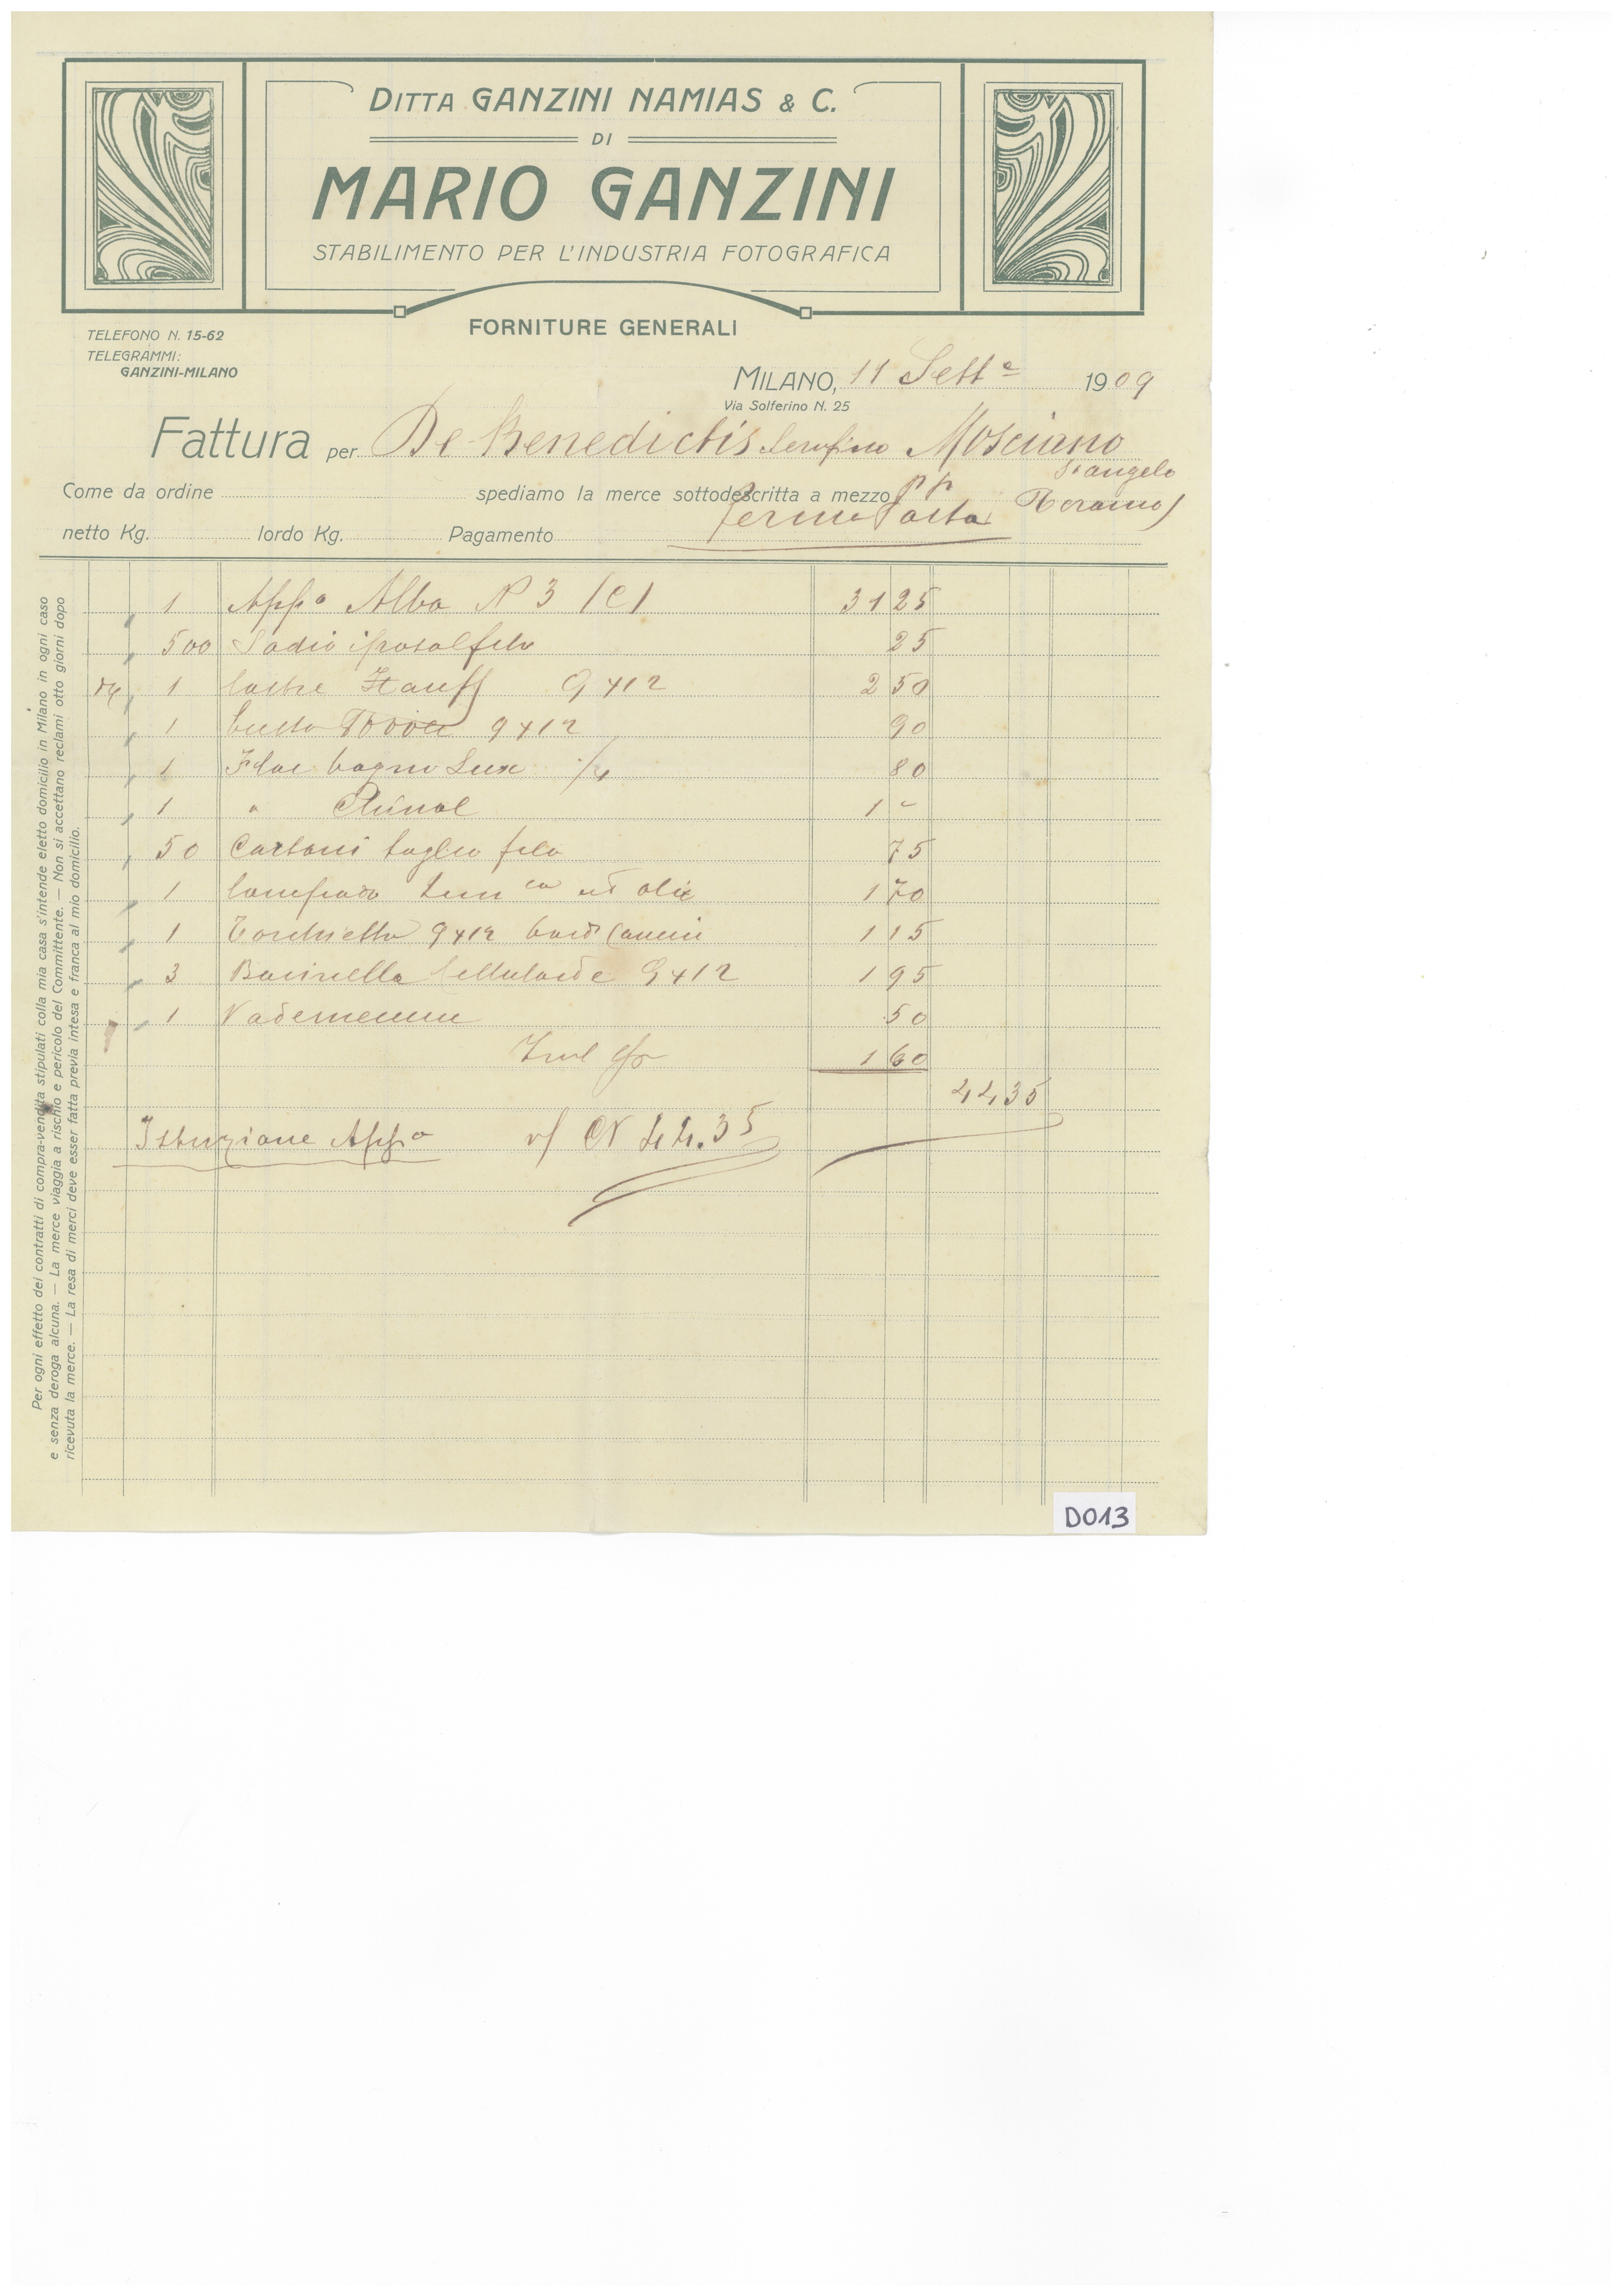 DITTA GANZINI NAMIAS & C.
DI
MARIO GANZINI
STABILIMENTO PER L'INDUSTRIA FOTOGRAFICA
FORNITURE GENERALI
TELEFONO N. 15-62
TELEGRAMMI:
GANZINI-MILANO
MILANO, 11 Sett e 1909
Via Solferino N. 25
Fattura per De Benedictis Serafino Mosciano
S. angelo
Come da ordine spediamo la merce sottodescritta a mezzo pp
Teramo)
fermo Posta
netto Kg. lordo Kg. Pagamento
1 App o Alba N 3 (C) 31 25
500 Sodio iposolfito 25
1 lastre Hauff 9x12 2 50
1 busta 9x12 90
1 bagno Lux 80
1 " 1 -
50 Cartoni taglio filo 75
1 olio 1 70
1 Torchietto 9x12 1 15
3 Bacinelle Celluloide 9x12 1 95
1 Vademecum 50
1 60
44 35
Istruzione App o 44.35
Per ogni effetto dei contratti di compra-vendita stipulati colla mia casa s'intende eletto domicilio in Milano in ogni caso
e senza deroga alcuna. — La merce viaggia a rischio e pericolo del Committente. — Non si accettano reclami otto giorni dopo
ricevuta la merce. — La resa di merci deve esser fatta previa intesa e franca al mio domicilio.
D013